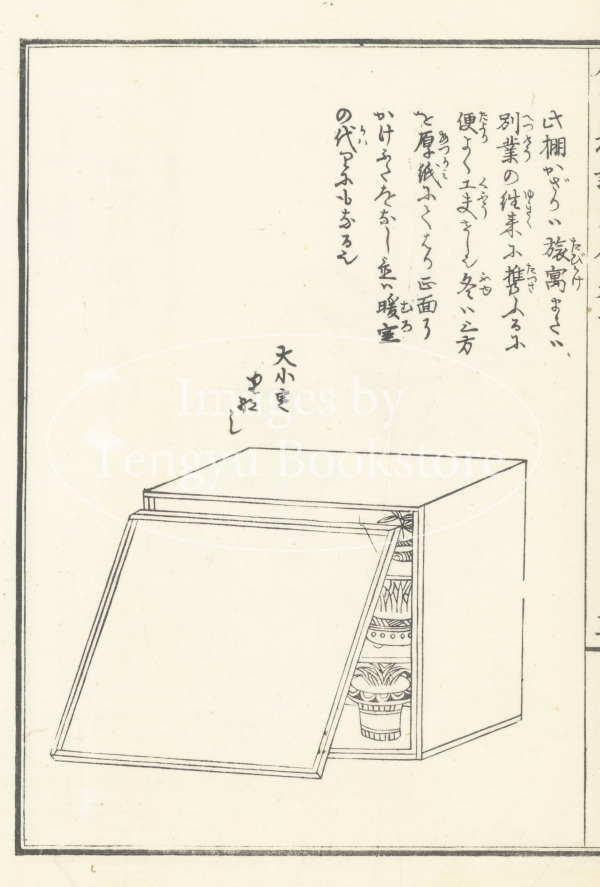 此棚かざりハ旅寓またハ
別業の往来に携ふるに
便よく工夫
冬ハ三方
を厚紙にてはり正面
かけふたをなし置ハ暖室
の代りにもなる
大小
Images by
Tengyu Bookstore